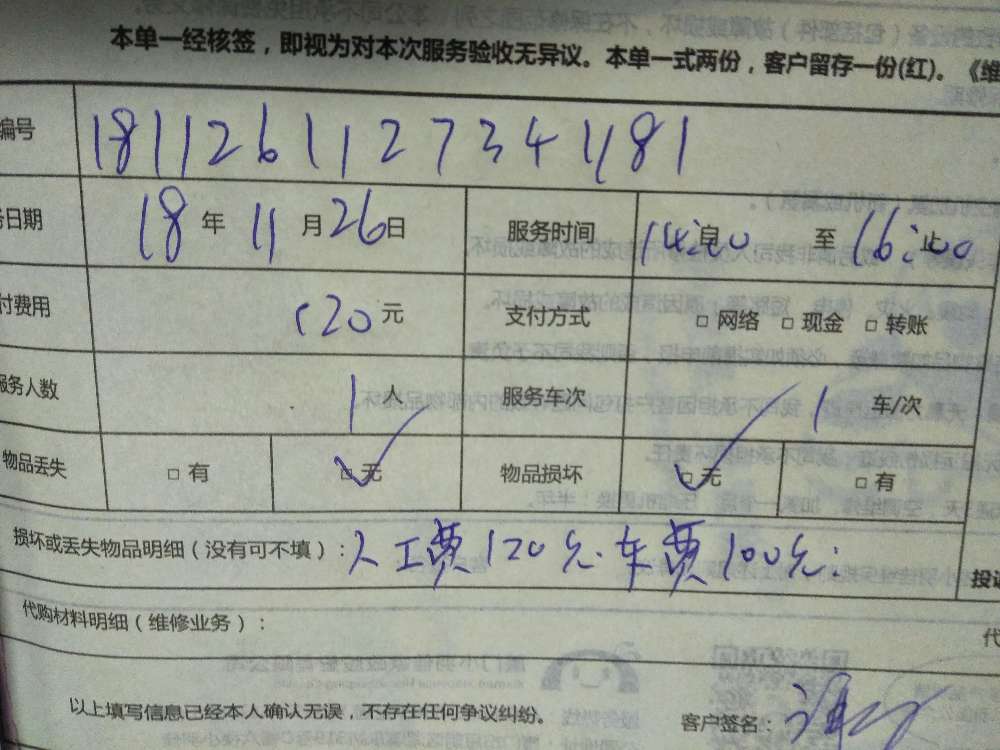 本单一经核签，即视为对本次服务验收无异议。本单一式两份，客户留存一份(红)。《维
编号 181126112734481
日期 18年11月26日 服务时间 14:00 自 至 16:00 止
付费用 120元 支付方式 □ 网络 □ 现金 □ 转账
服务人数 1人 服务车次 1 车/次
物品丢失 □ 有 □ 无 物品损坏 □ 无 □ 有
损坏或丢失物品明细（没有可不填）：人工费120元.车费100元.
投诉
代购材料明细（维修业务）：
代
以上填写信息已经本人确认无误，不存在任何争议纠纷。 客户签名：